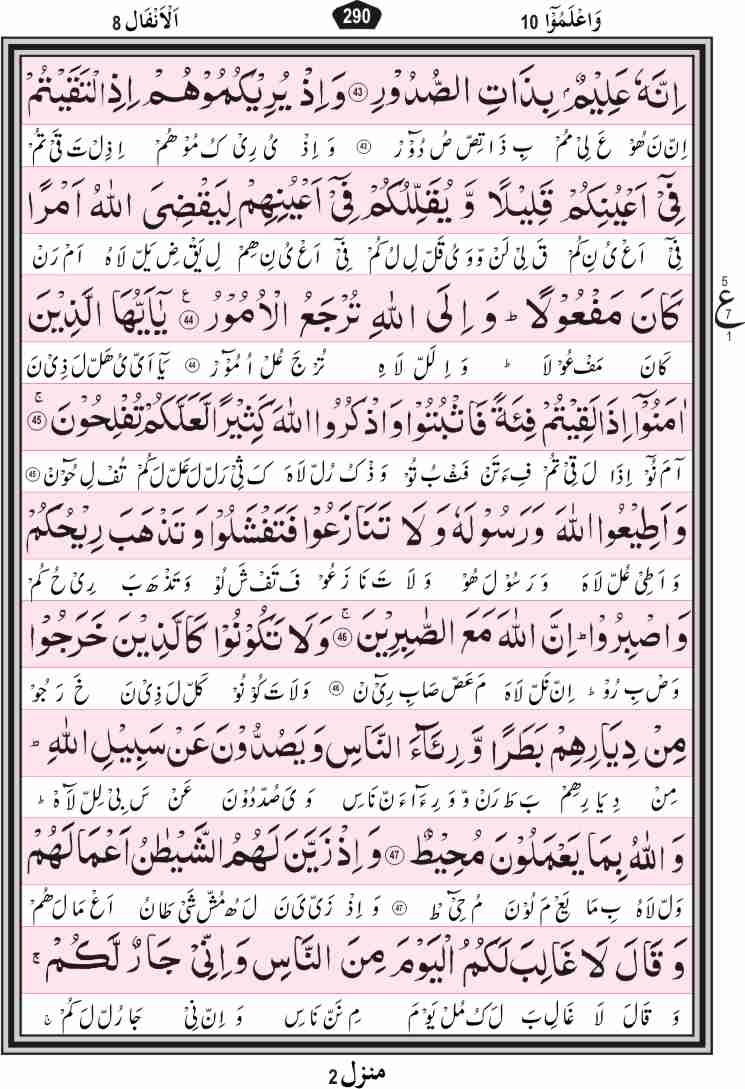 وَاعْلَمُوْٓا 10
290
اَلْاَنْفَال 8
اِنَّهٗ عَلِيْمٌۢ بِذَاتِ الصُّدُوْرِ ۝43 وَاِذْ يُرِيْكُمُوْهُمْ اِذِ الْتَقَيْتُمْ
اِنّ نَ هُوْ عَ لِىْ مُمْ بِ ذَا تِصّ صُ دُوْٓرْ ۝43 وَ اِذْ ىُ رِىْ كُ مُوْ هُمْ اِذِلْ تَ قَىْ تُمْ
فِيْٓ اَعْيُنِكُمْ قَلِيْلًا وَّ يُقَلِّلُكُمْ فِيْٓ اَعْيُنِهِمْ لِيَقْضِيَ اللّٰهُ اَمْرًا
فِىْٓ اَعْ ىُ نِ كُمْ قَ لِىْ لَنْ وّ وَ ىُ قَلّ لِ لُ كُمْ فِىْٓ اَعْ ىُ نِ هِمْ لِ يَقْ ضِ يَلّ لَاهُ اَمْ رَنْ
كَانَ مَفْعُوْلًا ؕ وَ اِلَى اللّٰهِ تُرْجَعُ الْاُمُوْرُ ۝44ع يٰٓاَيُّهَا الَّذِيْنَ
5
ع
7
1
كَانَ مَفْ عُوْ لَا ؕ وَ اِ لَلّ لَاهِ تُرْ جَ عُلْ اُ مُوْٓرْ ۝44 يَآ اَىّ ىُ هَلّ لَ ذِىْ نَ
اٰمَنُوْٓا اِذَا لَقِيْتُمْ فِئَةً فَاثْبُتُوْا وَاذْكُرُوا اللّٰهَ كَثِيْرًا لَّعَلَّكُمْ تُفْلِحُوْنَ ۝45ۚ
آ مَ نُوْٓ اِذَا لَ قِىْ تُمْ فِ ءَ تَنْ فَثْ بُ تُوْ وَ ذْ كُ رُلّ لَاهَ كَ ثِىْ رَلّ لَ عَلّ لَ كُمْ تُفْ لِ حُوْٓنْ ۝45
وَ اَطِيْعُوا اللّٰهَ وَرَسُوْلَهٗ وَ لَا تَنَازَعُوْا فَتَفْشَلُوْا وَ تَذْهَبَ رِيْحُكُمْ
وَ اَ طِىْ عُلّ لَاهَ وَ رَ سُوْ لَ هُوْ وَ لَا تَ نَا زَ عُوْ فَ تَفْ شَ لُوْ وَ تَذْ هَ بَ رِىْ حُ كُمْ
وَ اصْبِرُوْا ؕ اِنَّ اللّٰهَ مَعَ الصّٰبِرِيْنَ ۝46ۚ وَلَا تَكُوْنُوْا كَالَّذِيْنَ خَرَجُوْا
وَصْ بِ رُوْ ؕ اِنّ نَلّ لَاهَ مَ عَصّ صَا بِ رِىْٓ نْ ۝46 وَ لَا تَ كُوْ نُوْ كَلّ لَ ذِىْ نَ خَ رَ جُوْ
مِنْ دِيَارِهِمْ بَطَرًا وَّ رِئَآءَ النَّاسِ وَ يَصُدُّوْنَ عَنْ سَبِيْلِ اللّٰهِ ؕ
مِنْ دِ يَا رِ هِمْ بَ طَ رَنْ وّ وَ رِ ءَآ ءَ نّ نَاسِ وَ ىَ صُدّ دُوْنَ عَنْ سَ بِىْ لِلّ لَآهْ ؕ
وَ اللّٰهُ بِمَا يَعْمَلُوْنَ مُحِيْطٌ ۝47 وَ اِذْ زَيَّنَ لَهُمُ الشَّيْطٰنُ اَعْمَالَهُمْ
وَلّ لَاهُ بِ مَا يَعْ مَ لُوْنَ مُ حِىْٓ طْ ۝47 وَ اِذْ زَىّ ىَ نَ لَ هُ مُشّ شَىْ طَانُ اَعْ مَا لَ هُمْ
وَ قَالَ لَا غَالِبَ لَكُمُ الْيَوْمَ مِنَ النَّاسِ وَ اِنِّيْ جَارٌ لَّكُمْ ۚ
وَ قَالَ لَا غَالِ بَ لَ كُ مُلْ يَوْمَ مِ نَنّ نَاسِ وَ اِنّ نِىْ جَا رُلّ لَ كُمْ ۚ
منزل 2